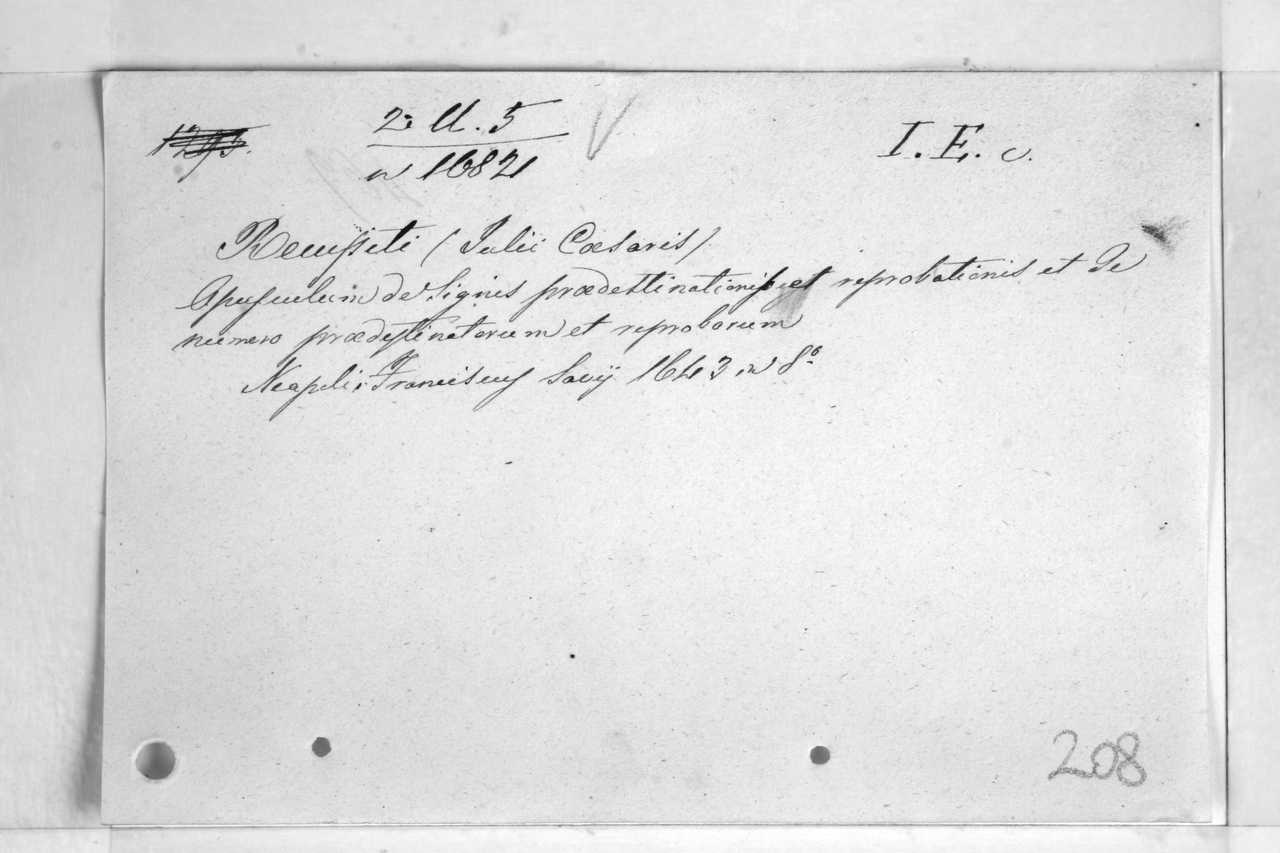 2a U. 5 I. E. c.
n 1682
Recupiti (Iulii Cæsaris)
Opusculum de Signis prædestinationis et reprobationis et de
numero prædestinatorum et reproborum
Neapoli, Franciscus Savij 1643 in 8º
208